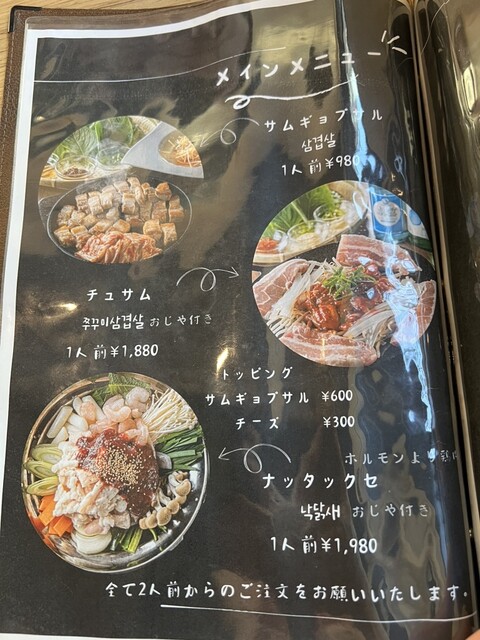 メインメニュー
サムギョプサル
삼겹살
1人前¥980
チュサム
쭈꾸미삼겹살 おじや付き
1人前¥1,880
トッピング
サムギョプサル ¥600
チーズ ¥300
ホルモンより
ナッタックセ
낙닭새 おじや付き
1人前¥1,980
全て2人前からのご注文をお願いいたします。